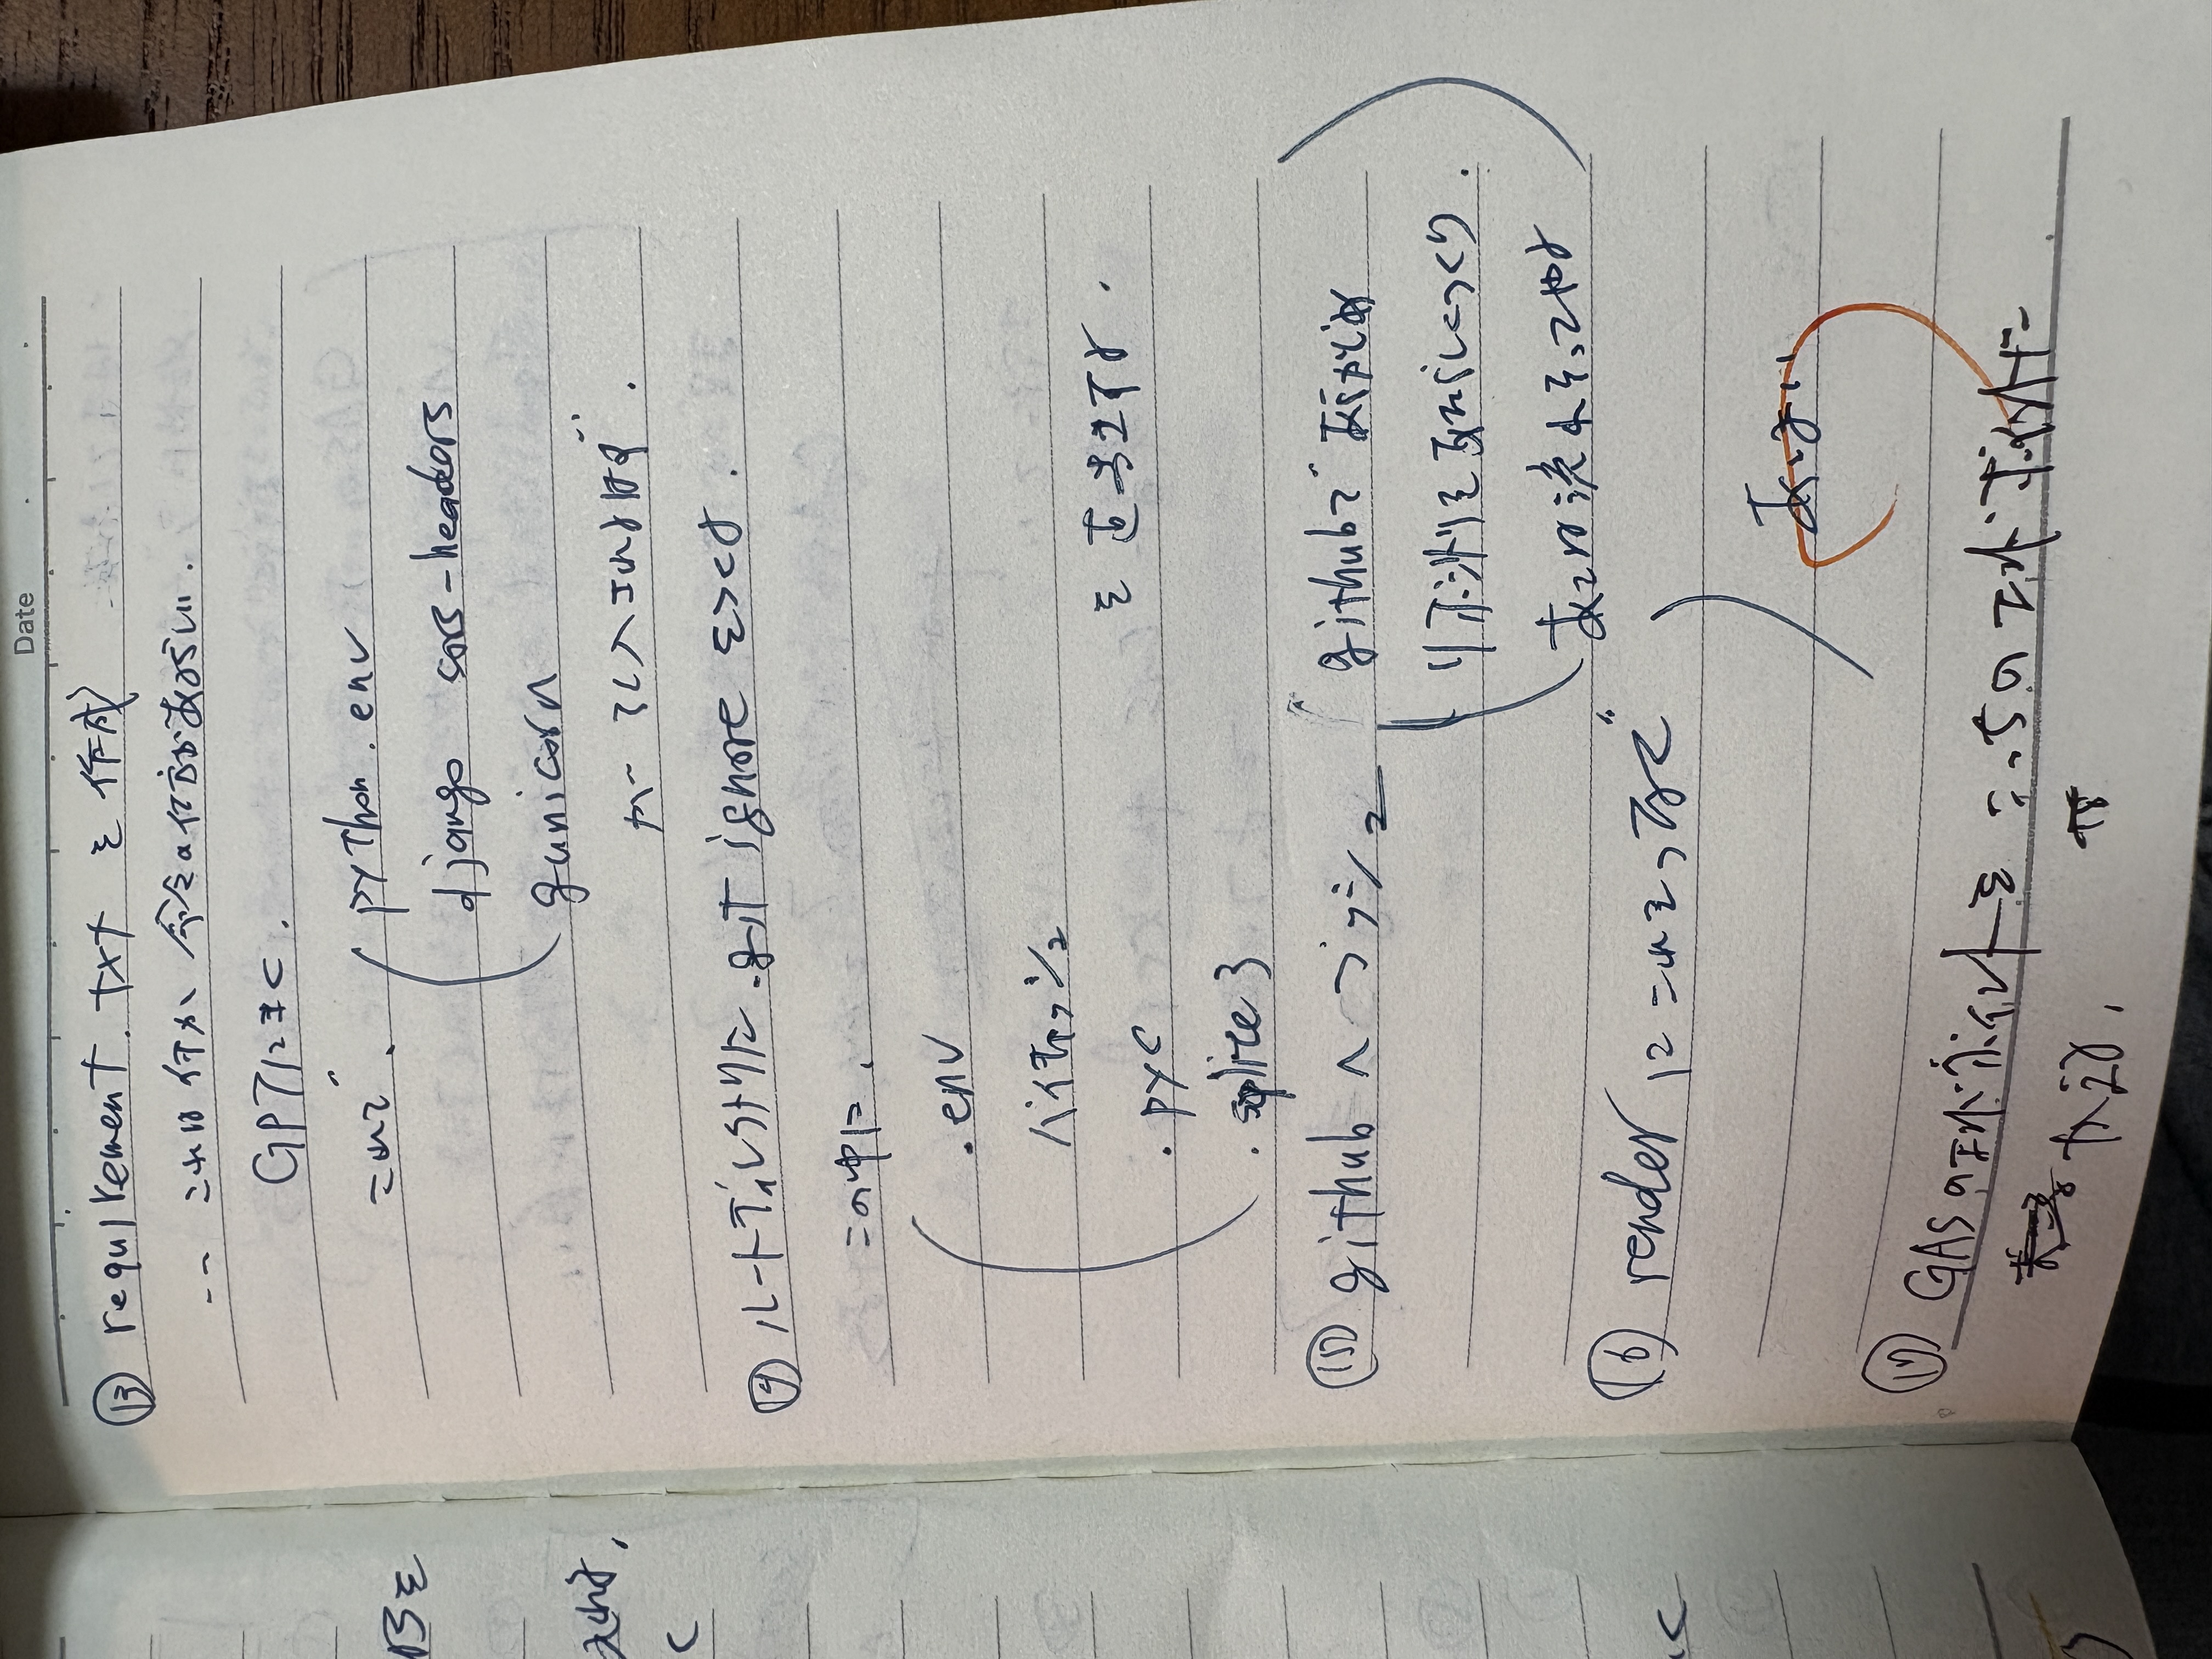 Date
⑬ requirement.txt を作成
-- これは何か 命令の仕方があるらしい.
GPTにきく.
これで、
python.env
django cors-headers
gunicorn
が 引入されるはず.
⑭ ルートディレクトリに .gitignore をつくる.
この中に、
.env
パイキャッシュ
を書き出する.
.pyc
.sqlite3
⑮ githubへプッシュ
githubであらかじめ
リポジトリをあたらしくつくり.
あとは流れにそってやる
⑯ renderにこれをつなぐ
あいまい
⑰ GASのエンドポイントをこっちのエンドポイントに
かえる、
Bを
く